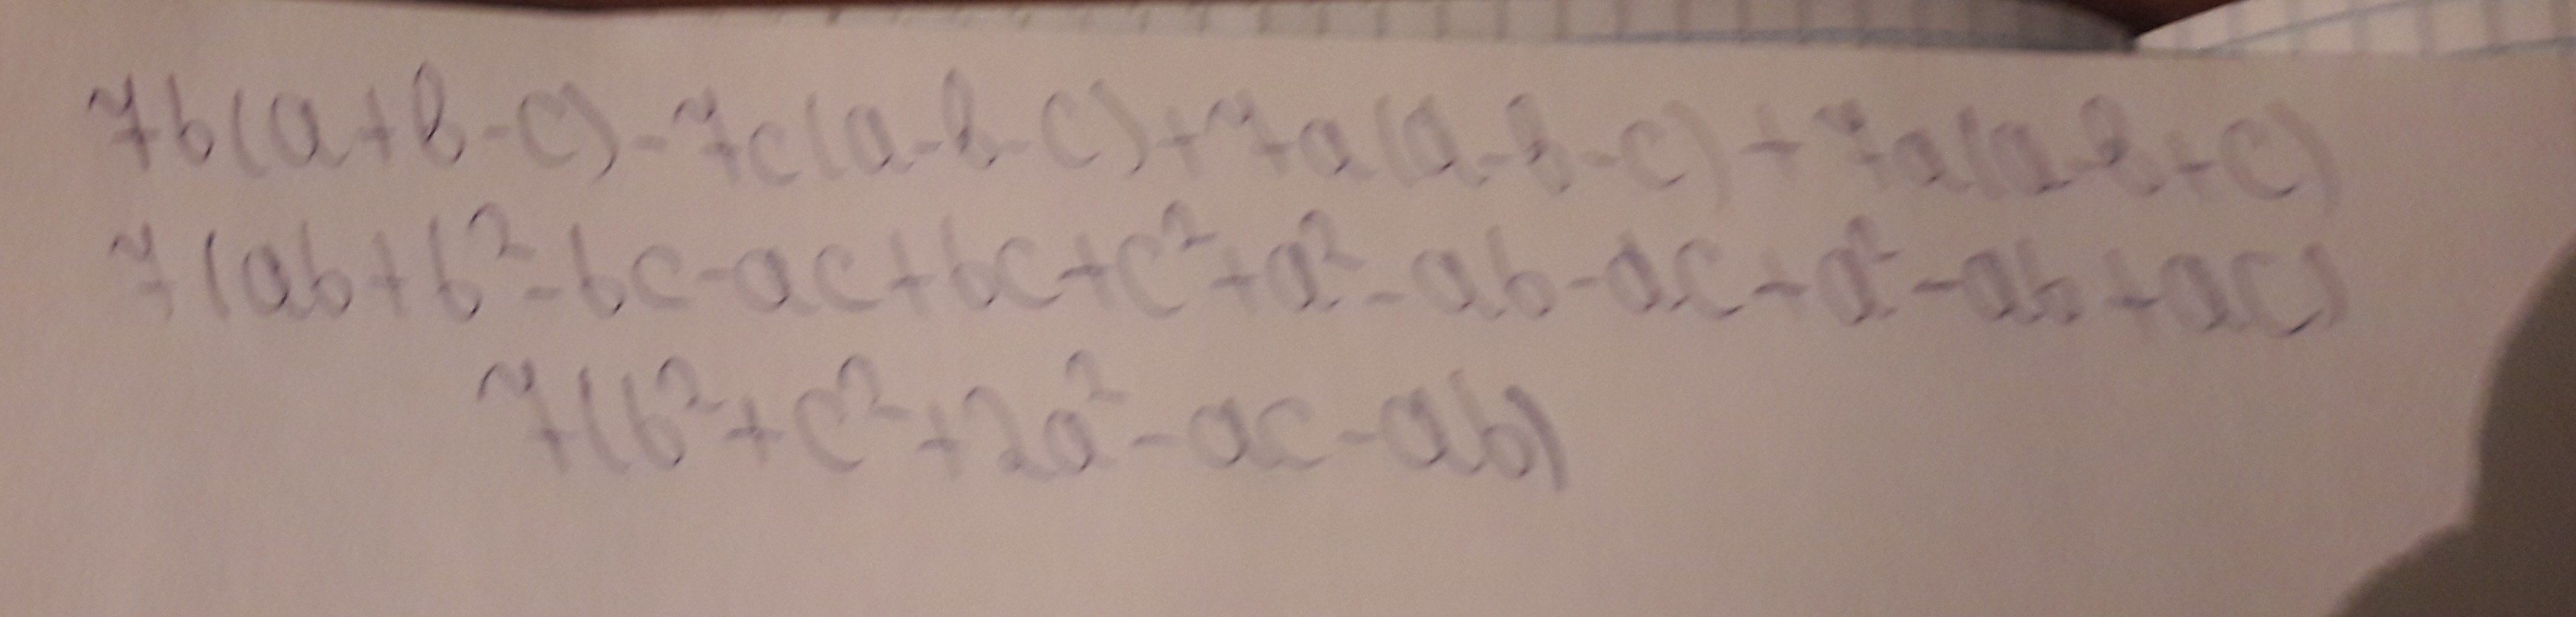 7b(a+b-c)-7c(a-b-c)+7a(a-b-c)+7a(a-b+c)
7(ab+b²-bc-ac+bc+c²+a²-ab-ac+a²-ab+ac)
7(b²+c²+2a²-ac-ab)